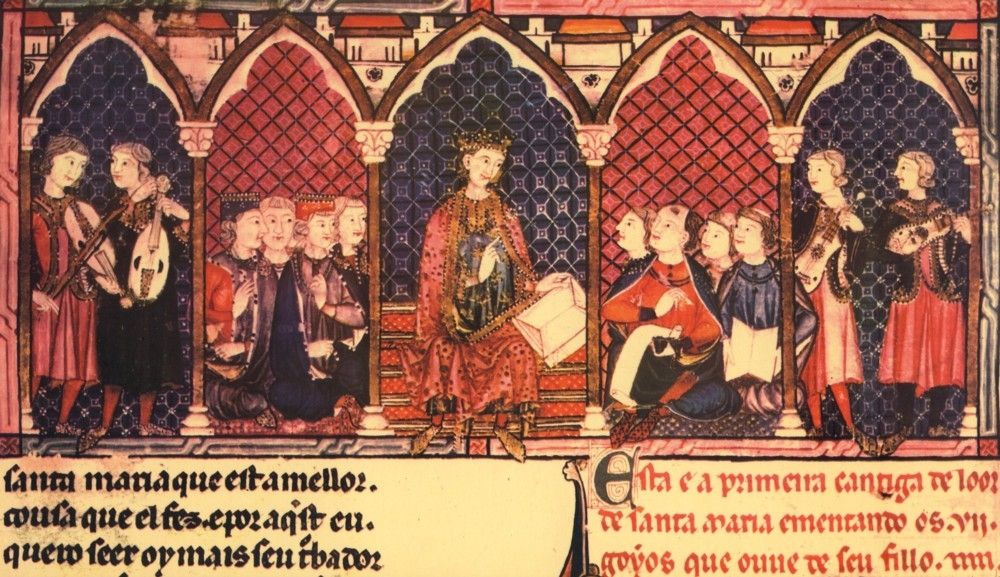 santa maria que est a mellor.
cousa que el fez. e por aq̃st eu.
quero seer oy mais seu t̃bador
Esta e a primeira cantiga de loor
de santa maria ementando os .vij.
goyos que ouue de seu fillo.